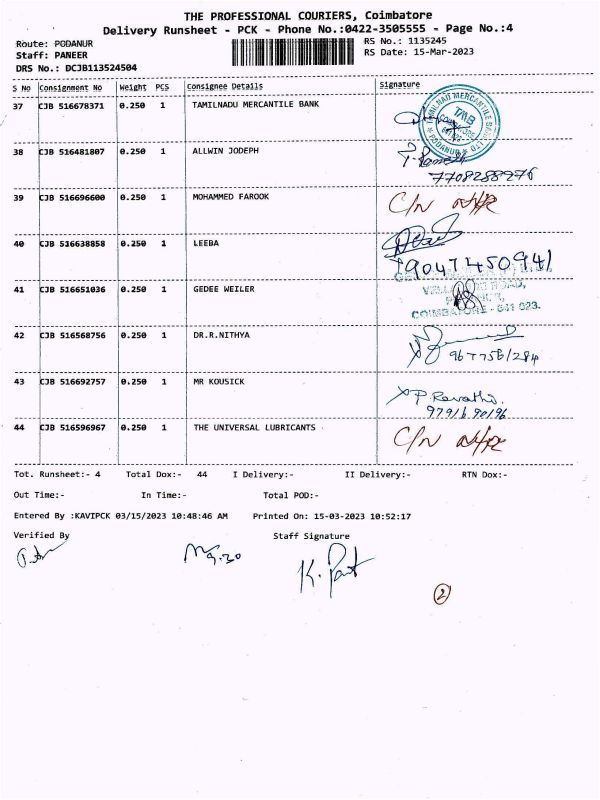 THE PROFESSIONAL COURIERS, Coimbatore
Delivery Runsheet - PCK - Phone No.:0422-3505555 - Page No.:4
Route: PODANUR
Staff: PANEER
DRS No.: DCJB113524504
RS No.: 1135245
RS Date: 15-Mar-2023
S No Consignment No Weight PCS Consignee Details Signature
37 CJB 516678371 0.250 1 TAMILNADU MERCANTILE BANK
TAMILNAD MERCANTILE BANK LTD TMB COIMBATORE PODANUR
38 CJB 516481807 0.250 1 ALLWIN JODEPH
7708288976
39 CJB 516696600 0.250 1 MOHAMMED FAROOK C/N
40 CJB 516638858 0.250 1 LEEBA
9047450941
41 CJB 516651036 0.250 1 GEDEE WEILER
ROAD,
COIMBATORE - 641 023.
42 CJB 516568756 0.250 1 DR.R.NITHYA
43 CJB 516692757 0.250 1 MR KOUSICK P. Revathi.
9791690196
44 CJB 516596967 0.250 1 THE UNIVERSAL LUBRICANTS C/N
Tot. Runsheet:- 4 Total Dox:- 44 I Delivery:- II Delivery:- RTN Dox:-
Out Time:- In Time:- Total POD:-
Entered By :KAVIPCK 03/15/2023 10:48:46 AM Printed On: 15-03-2023 10:52:17
Verified By Staff Signature
2